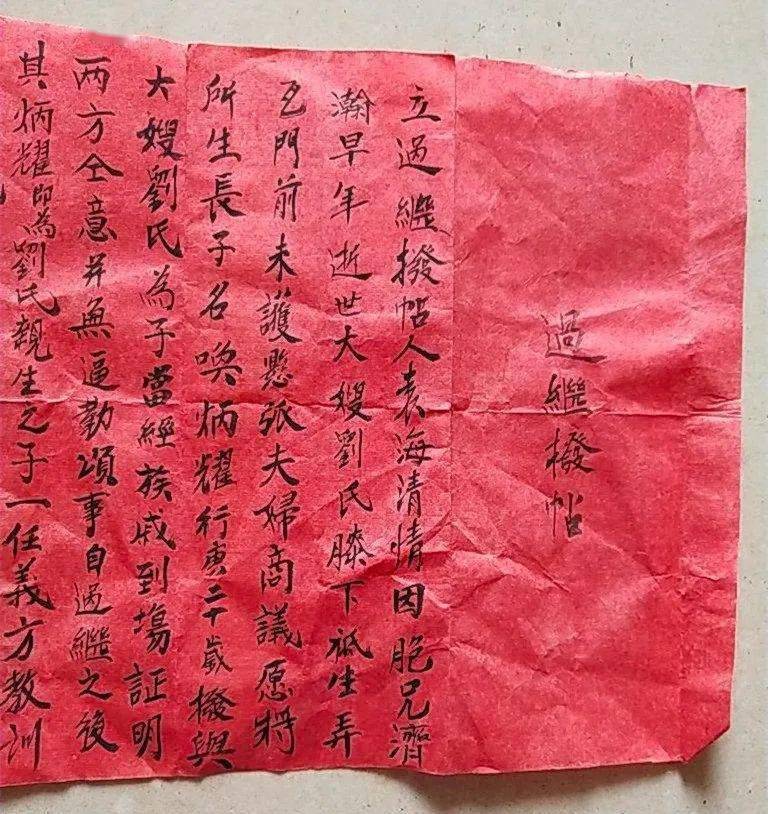 過繼撥帖
立過繼撥帖人袁海清情因胞兄濟
瀚早年逝世大嫂劉氏膝下祗生弄
瓦門前未護懸弧夫婦商議愿将
所生長子名喚炳耀行庚二十歲撥與
大嫂劉氏為子當經族戚到塲証明
两方仝意并無逼勒項事自過繼之後
其炳耀即為劉氏親生之子一任義方教训